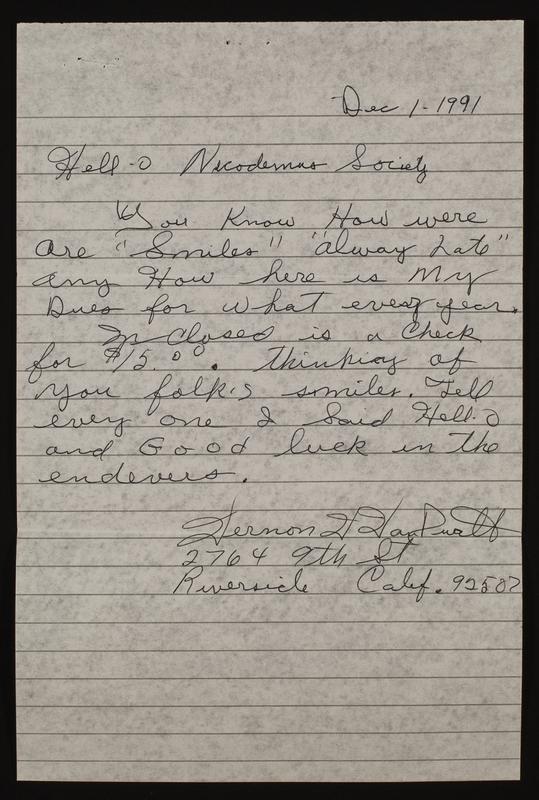 Dec 1-1991
Hell-o Nicodemus Society
You Know How were
are "Smiles" "alway Late"
any How here is My
Dues for what every year.
In closed is a Check
for $15.00. thinking of
you folk's smiles. Tell
every one I Said Hell-o
and Good luck in the
endevers.
Vernon
2764 9th St
Riverside Calif. 92507